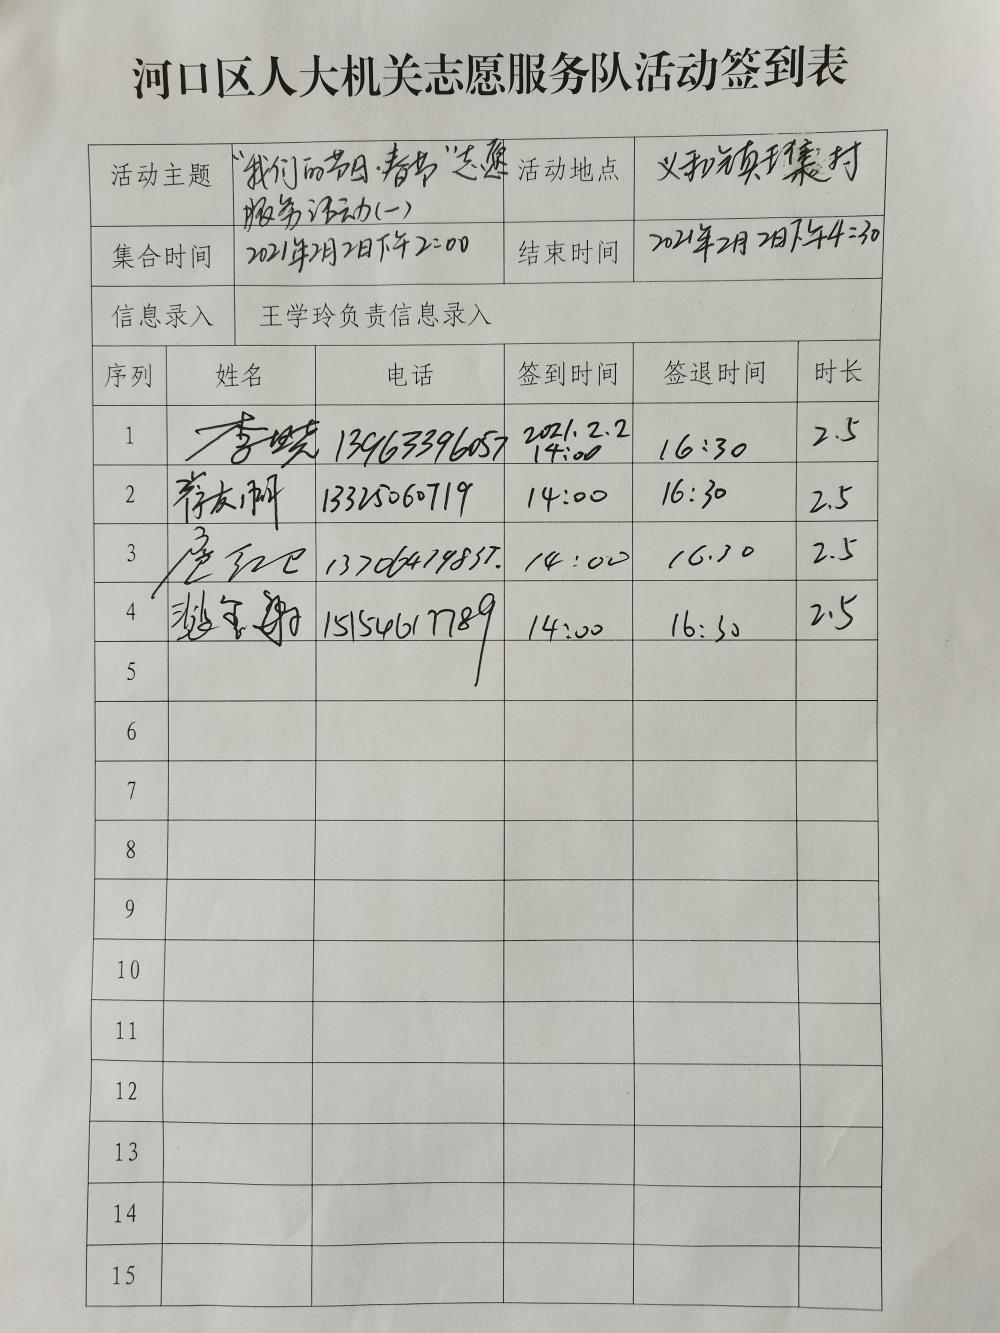 河口区人大机关志愿服务队活动签到表
活动主题 “我们的节日·春节”志愿 活动地点 义和镇 村
服务活动(一)
集合时间 2021年2月2日下午2:00 结束时间 2021年2月2日下午4:30
信息录入 王学玲负责信息录入
序列 姓名 电话 签到时间 签退时间 时长
1 李 13963396057 2021.2.2 14:00 16:30 2.5
2 友 13325060719 14:00 16:30 2.5
3 红 13706479837. 14:00 16.30 2.5
4 15154617789 14:00 16:30 2.5
5
6
7
8
9
10
11
12
13
14
15